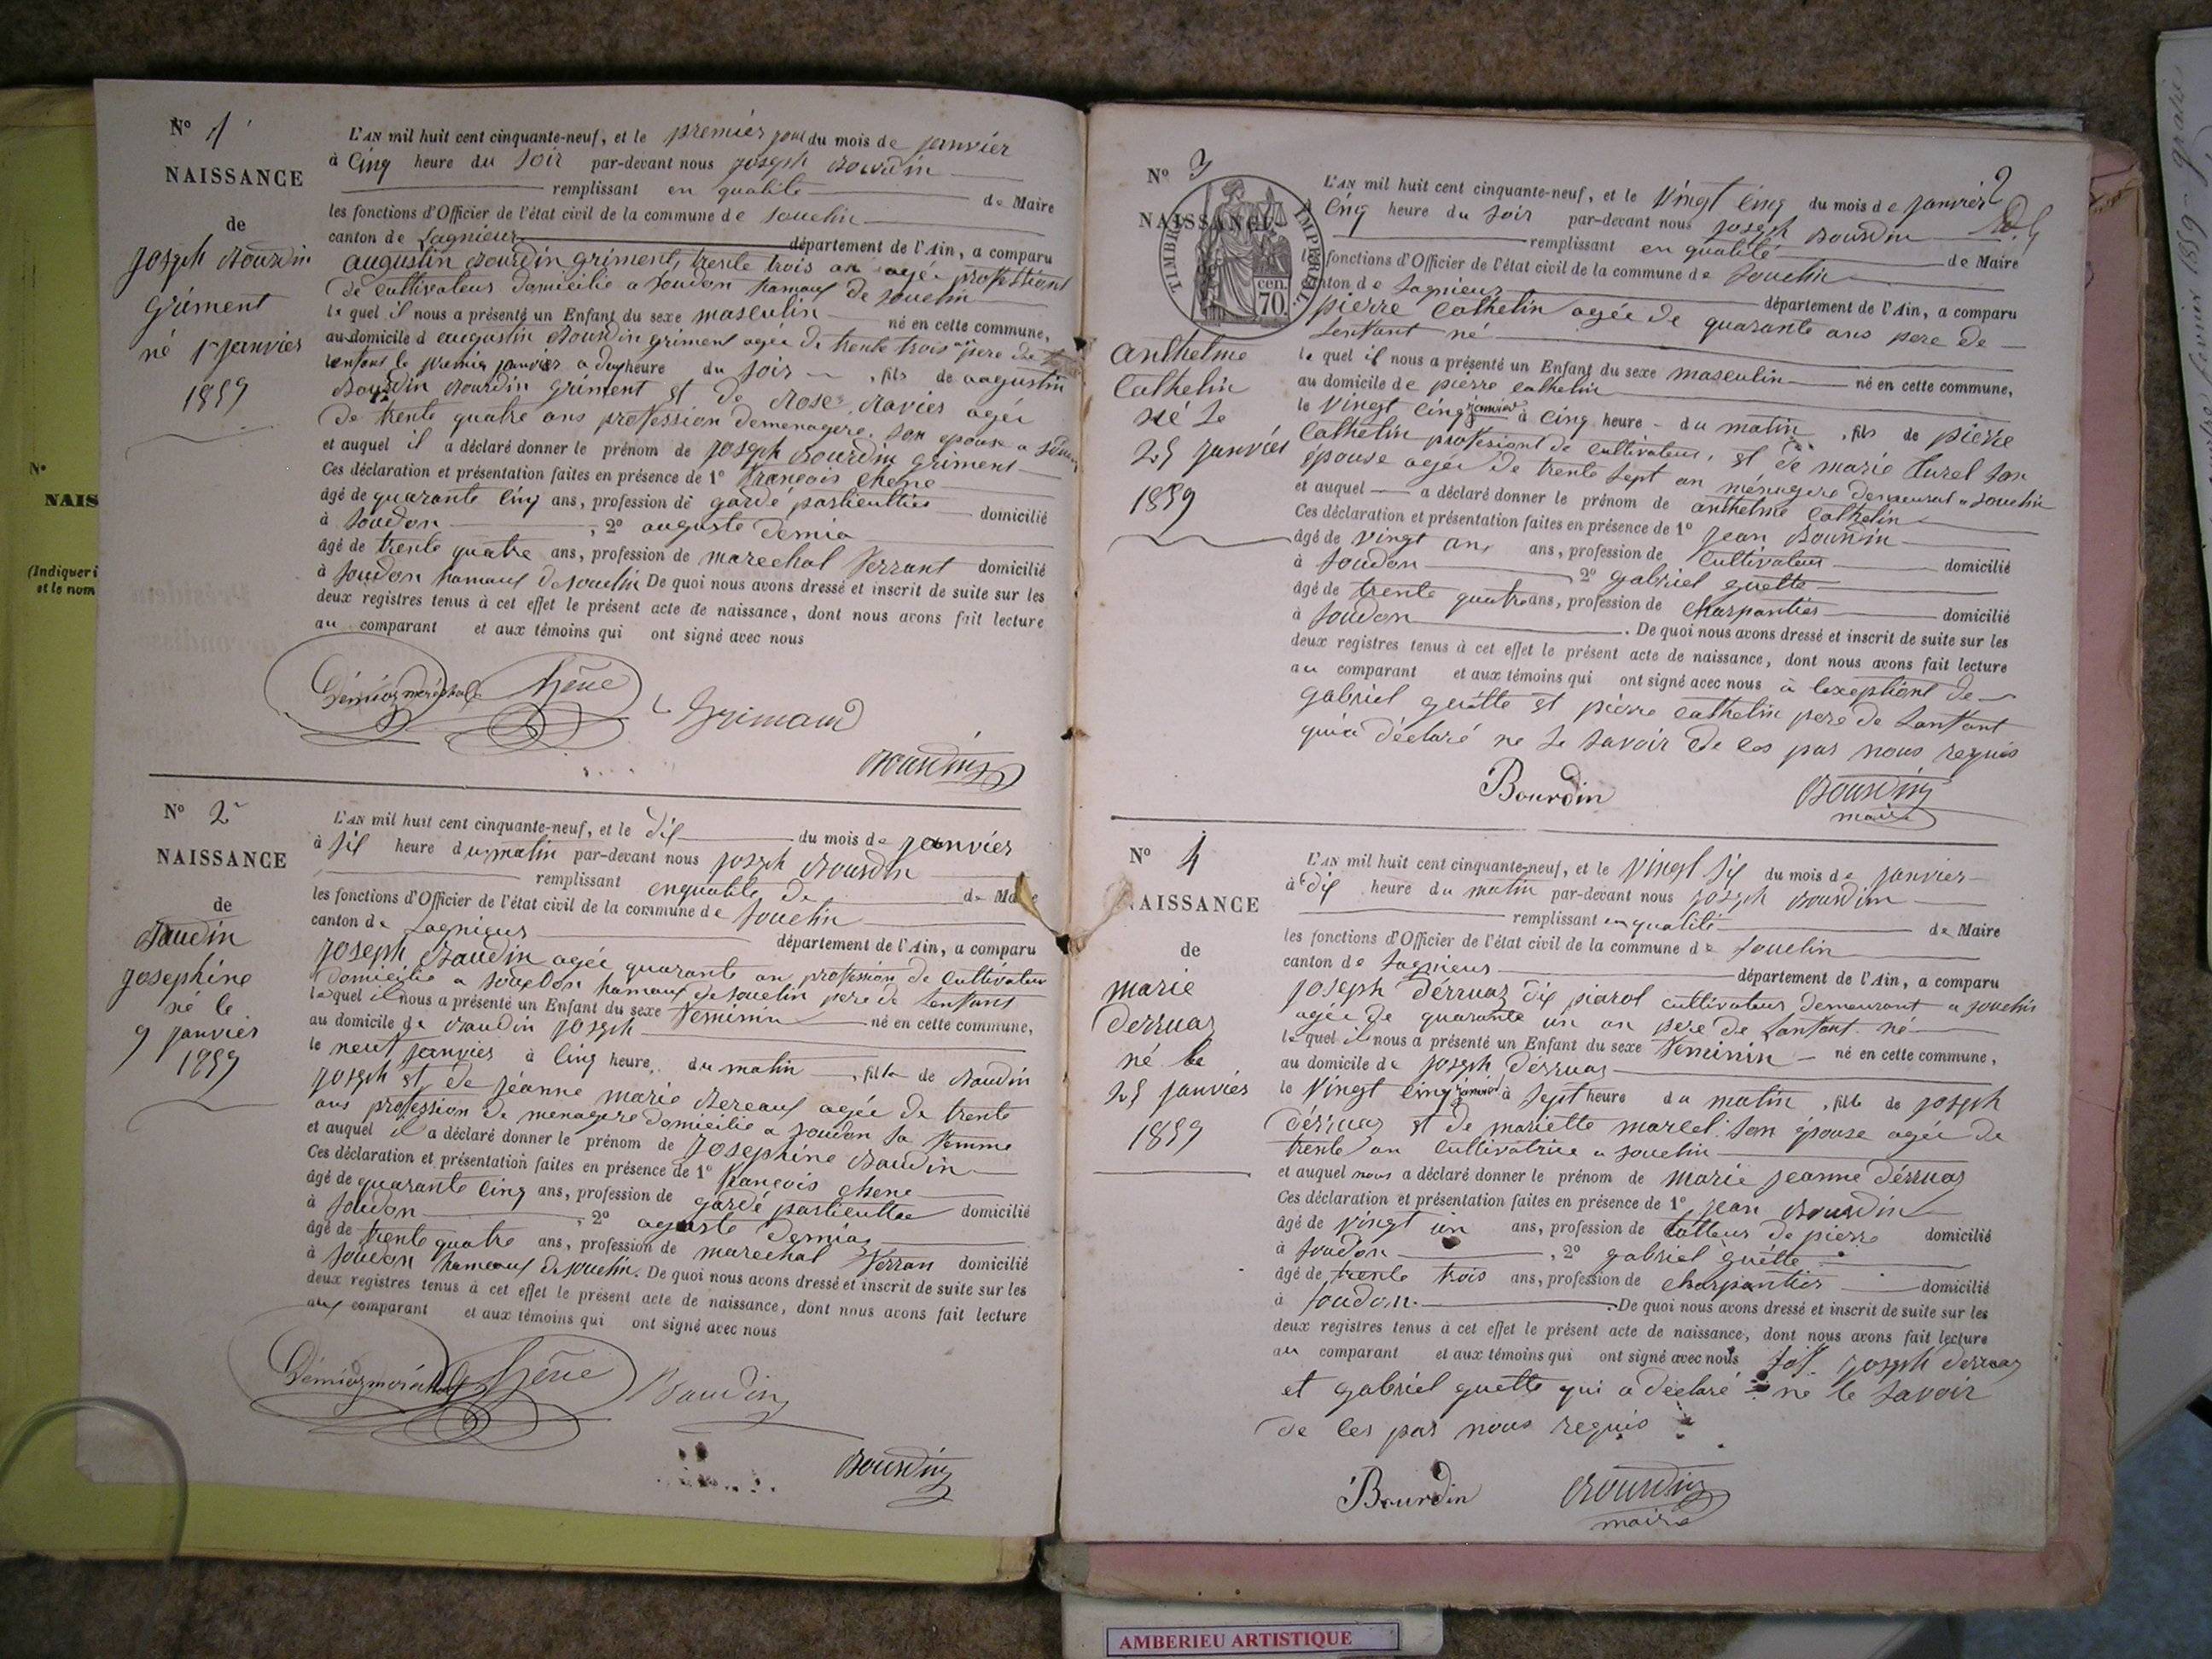 N° 1
NAISSANCE
de
joseph Bourdin
griment
né 1er janvier
1859
L'AN mil huit cent cinquante-neuf, et le premier jour du mois de janvier
à Cinq heure du soir par-devant nous joseph Bourdin
remplissant en qualité de Maire
les fonctions d'Officier de l'état civil de la commune de souclin
canton de Lagnieux département de l'Ain, a comparu
augustin Bourdin griment, trente trois an agée professiont
de cultivateur domicilié a soudon hamaux de souclin
le quel il nous a présenté un Enfant du sexe masculin né en cette commune,
au domicile d augustin Bourdin griment agée de trente trois ans pere de
lenfant le premier janvier a deux heure du soir , fils de augustin
Bourdin Bourdin griment et de Rose Ravier agée
de trente quatre ans profession de menagere son epouse a
et auquel il a déclaré donner le prénom de joseph Bourdin griment
Ces déclaration et présentation faites en présence de 1° francois chene
âgé de quarante cinq ans, profession de garde partienttier domicilié
à soudon , 2° auguste demia
âgé de trente quatre ans, profession de marechal ferrant domicilié
à soudon hamaux de souclin De quoi nous avons dressé et inscrit de suite sur les
deux registres tenus à cet effet le présent acte de naissance, dont nous avons fait lecture
au comparant et aux témoins qui ont signé avec nous
Démiaz maréchal Chêne Grimand
Bourdin
N° 2
NAISSANCE
de
Baudin
josephine
né le
9 janvier
1859
L'AN mil huit cent cinquante-neuf, et le dix du mois de janvier
à six heure du matin par-devant nous joseph Bourdin
remplissant enqualité de de Maire
les fonctions d'Officier de l'état civil de la commune de souclin
canton de Lagnieux département de l'Ain, a comparu
joseph Baudin agée quarante an profession de cultivateur
domicilié a soudon hamaux de souclin pere de lenfant
le quel il nous a présenté un Enfant du sexe feminin né en cette commune,
au domicile de Baudin joseph
le neuf janvier à cinq heure du matin , fille de Baudin
joseph et de jeanne marie Bereaux agée de trente
ans profession de menagere domicilié a soudon sa femme
et auquel il a déclaré donner le prénom de josephine Baudin
Ces déclaration et présentation faites en présence de 1° francois chene
âgé de quarante cinq ans, profession de garde partienttier domicilié
à soudon , 2° aguste Demiaz
âgé de trente quatre ans, profession de marechal ferran domicilié
à soudon hameaux de souclin. De quoi nous avons dressé et inscrit de suite sur les
deux registres tenus à cet effet le présent acte de naissance, dont nous avons fait lecture
aux comparant et aux témoins qui ont signé avec nous
Démiaz maréchal Chêne Baudin
Bourdin
N° 3
2
NAISSANCE
TIMBRE IMPERIAL
cen.
70.
anthelme
Cathelin
né le
25 janvier
1859
L'AN mil huit cent cinquante-neuf, et le vingt cinq du mois de janvier
à cinq heure du soir par-devant nous joseph Bourdin
remplissant en qualité de Maire
les fonctions d'Officier de l'état civil de la commune de souclin
canton de Lagnieux département de l'Ain, a comparu
pierre Cathelin agée de quarante ans pere de
lenfant né
le quel il nous a présenté un Enfant du sexe masculin né en cette commune,
au domicile de pierre cathelin
le vingt cinq janvier à cinq heure du matin , fils de pierre
Cathelin profesiont de cultivateur, et de marie turel son
épouse agée de trente sept an ménagere demeurant a souclin
et auquel a déclaré donner le prénom de anthelme Cathelin
Ces déclaration et présentation faites en présence de 1° jean Bourdin
âgé de vingt an ans, profession de Cultivateur domicilié
à soudon 2° gabriel guette
âgé de trente quatre ans, profession de charpantier domicilié
à soudon . De quoi nous avons dressé et inscrit de suite sur les
deux registres tenus à cet effet le présent acte de naissance, dont nous avons fait lecture
au comparant et aux témoins qui ont signé avec nous à lexeptiont de
gabriel guétte et pierre cathelin pere de lanfant
qui a déclaré ne le savoir de ces par nous requis
Bourdin Bourdin
maire
N° 4
NAISSANCE
de
marie
derruaz
né le
25 janvier
1859
L'AN mil huit cent cinquante-neuf, et le vingt six du mois de janvier
à dix heure du matin par-devant nous joseph Bourdin
remplissant en qualité de Maire
les fonctions d'Officier de l'état civil de la commune de souclin
canton de Lagnieux département de l'Ain, a comparu
joseph Dérruaz dix piarot cultivateur demeurant a souclin
agée de quarante un an pere de lanfant né
le quel il nous a présenté un Enfant du sexe feminin né en cette commune,
au domicile de joseph dérruaz
le vingt cinq janvier à sept heure du matin , fille de joseph
Dérruaz et de mariette marcel son épouse agée de
trente an cultivatrice a souclin
et auquel nous a déclaré donner le prénom de marie jeanne dérruaz
Ces déclaration et présentation faites en présence de 1° jean Bourdin
âgé de vingt un ans, profession de talleur de pierre domicilié
à soudon , 2° gabriel guétte
âgé de trente trois ans, profession de charpantier domicilié
à soudon. De quoi nous avons dressé et inscrit de suite sur les
deux registres tenus à cet effet le présent acte de naissance, dont nous avons fait lecture
au comparant et aux témoins qui ont signé avec nous joseph derruaz
et gabriel guette qui a déclaré ne le savoir
de ces par nous requis
Bourdin Bourdin
maire
N°
NAIS
(Indiquer i
et le nom
AMBERIEU ARTISTIQUE